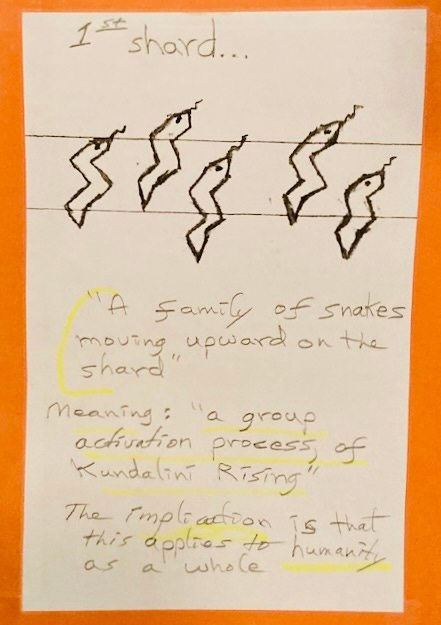 1st shard...
"A family of snakes
moving upward on the
shard"
Meaning: "a group
activation process, of
Kundalini Rising"
The implication is that
this applies to humanity
as a whole